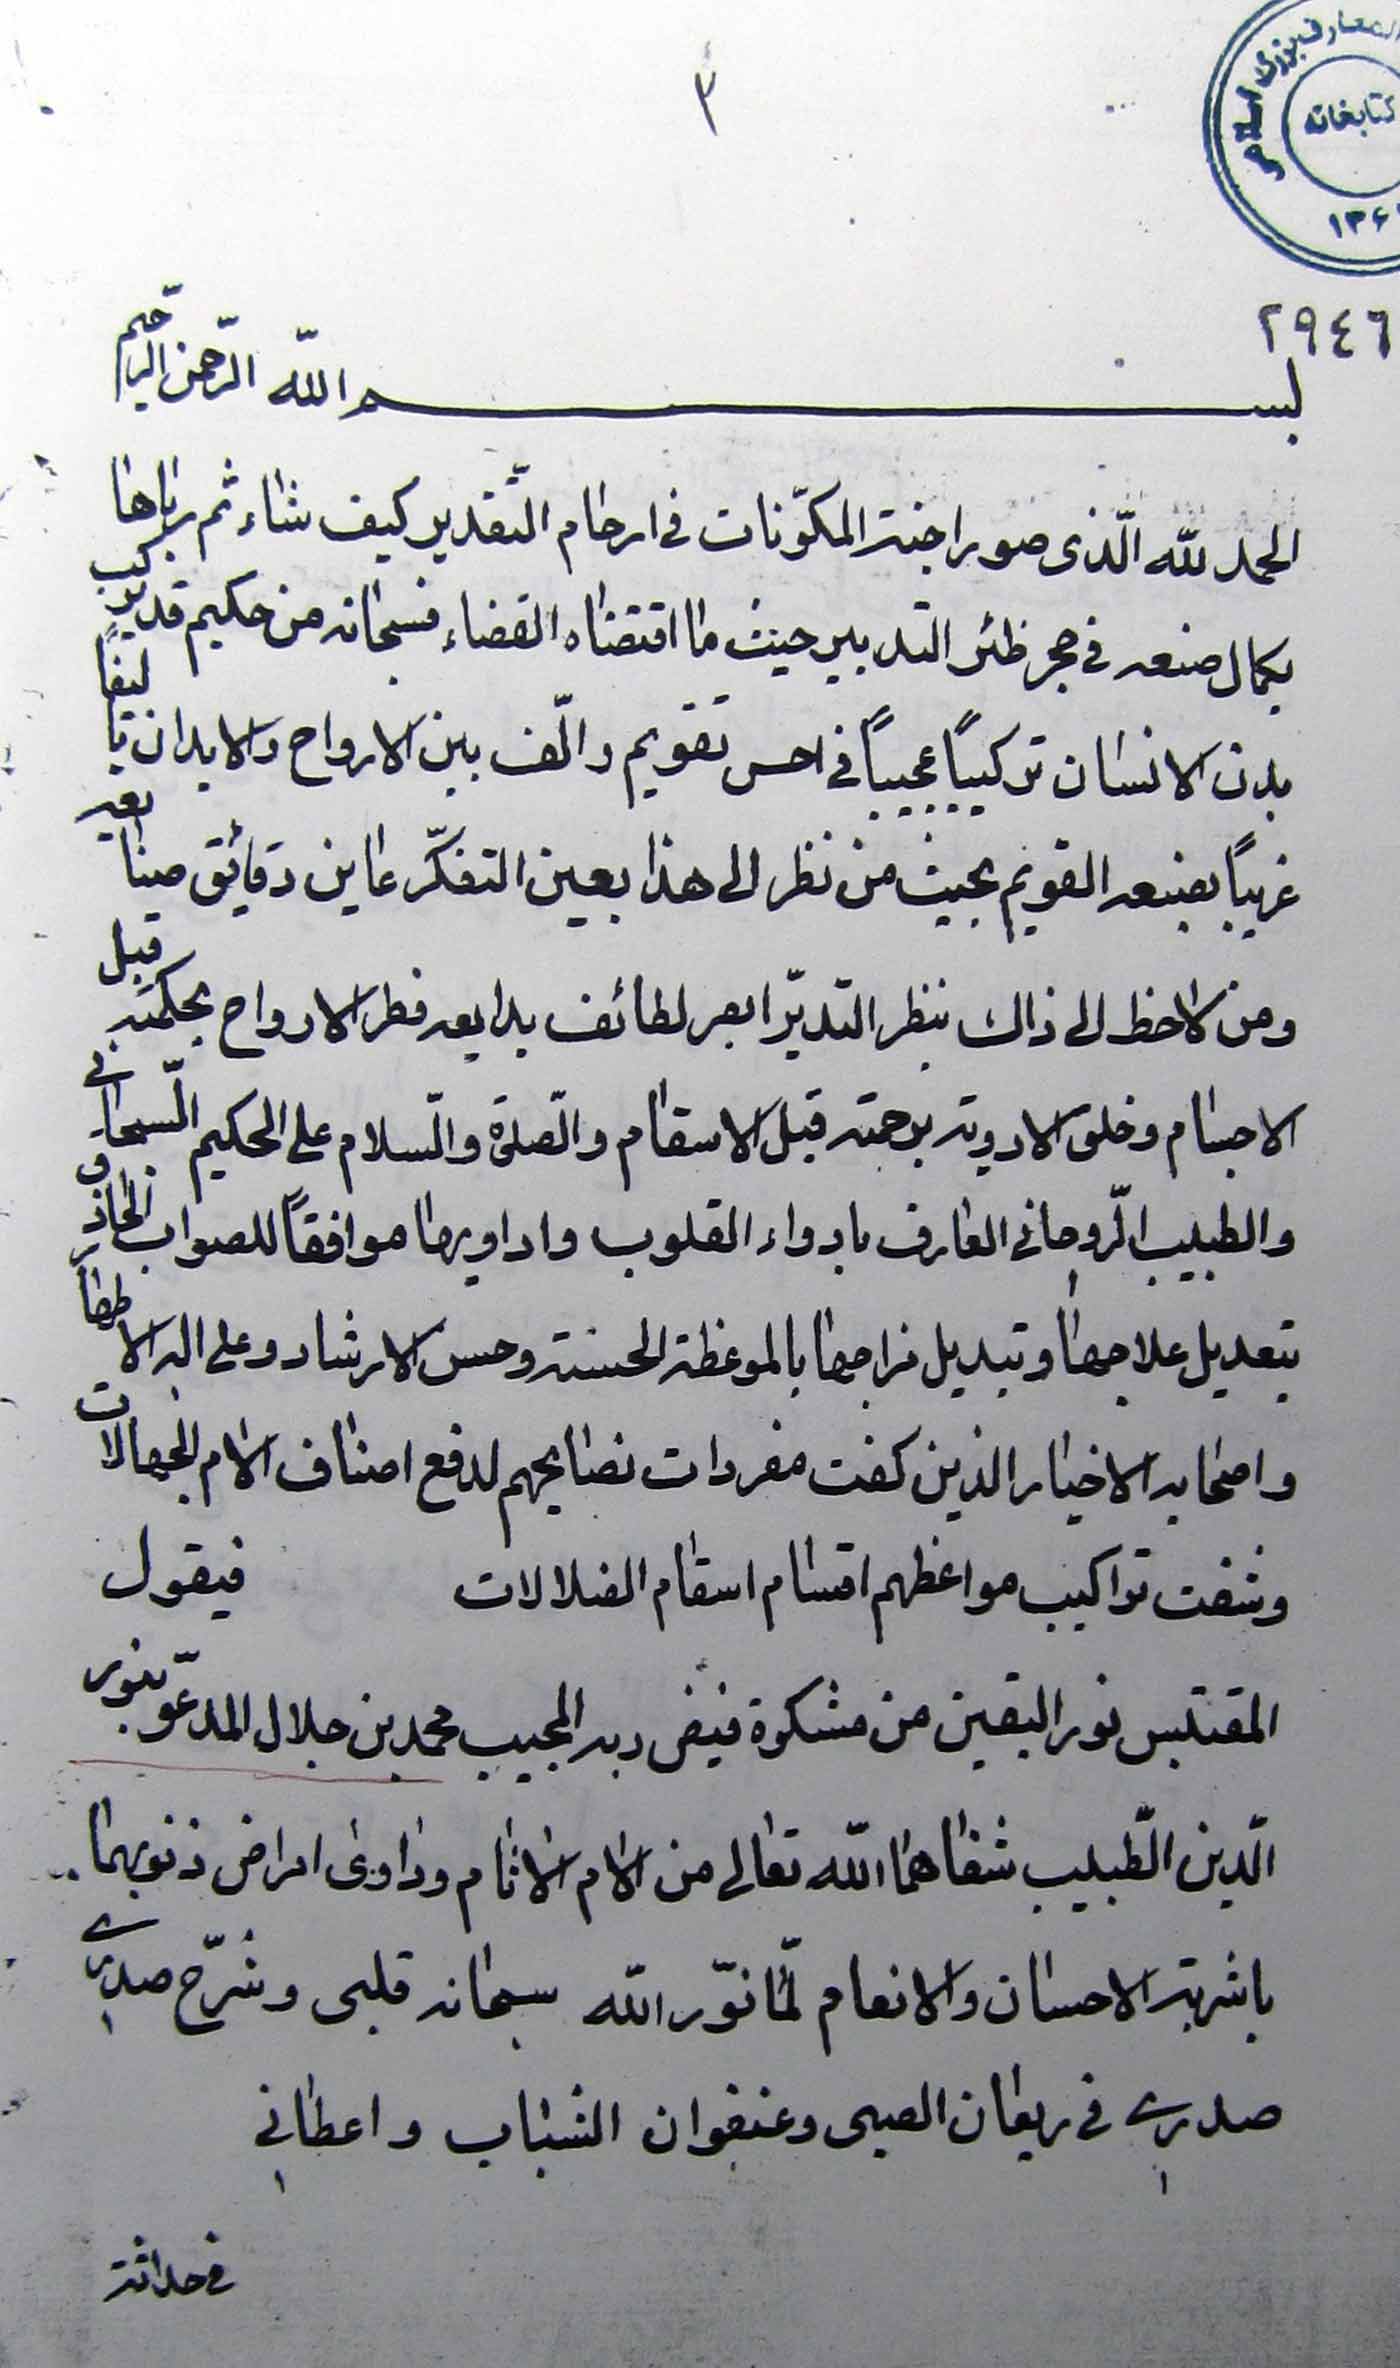 ٣
المعارف بزرگ اسلامی
کتابخانه
١٣٦
٢٩٤٦
بسم الله الرّحمن الرّحیم
الحمد لله الّذی صور اجنة المکوّنات فی ارحام التّقدیر کیف شاء ثم ربّاها
بکمال صنعه فی حجر ظئر التدبیر حیث ما اقتضاه القضاء فسبحانه من حکیم قدیر رکب
بدن الانسان ترکیباً عجیباً فی احسن تقویم و الّف بین الارواح والابدان تالیفاً
غریباً بصنعه القویم بحیث من نظر الی هذا بعین التفکّر عاین دقائق صنایعه
ومن لاحظ الی ذالک بنظر التدبّر ابصر لطائف بدایعه فطر الارواح بحکمته قبل
الاجسام وخلق الادویة برحمته قبل الاسقام والصّلوة والسّلام علی الحکیم السّبحانی
والطبیب الرّوحانی العارف بادواء القلوب وادویها موافقاً للصواب الحاذق
بتعدیل علاجها و تبدیل مزاجها بالموعظة الحسنة وحسن الارشاد و علی اله الاطهار
واصحابه الاخیار الذین کفت مفردات نصایحهم لدفع اصناف الام الجهالات
وشفت تراکیب مواعظهم اقسام اسقام الضلالات فیقول
المقتبس نور الیقین من مشکوة فیض ربه المجیب محمد بن جلال المدعّو بنور
الّدین الطّبیب شفاهما الله تعالی من الام الاثام و داوی امراض ذنوبهما
باشربة الاحسان والانعام لمّا نوّر الله سبحانه قلبی و شرّح صدری
صدری فی ریعان الصبی وعنفوان الشباب واعطانی
فی حداثة